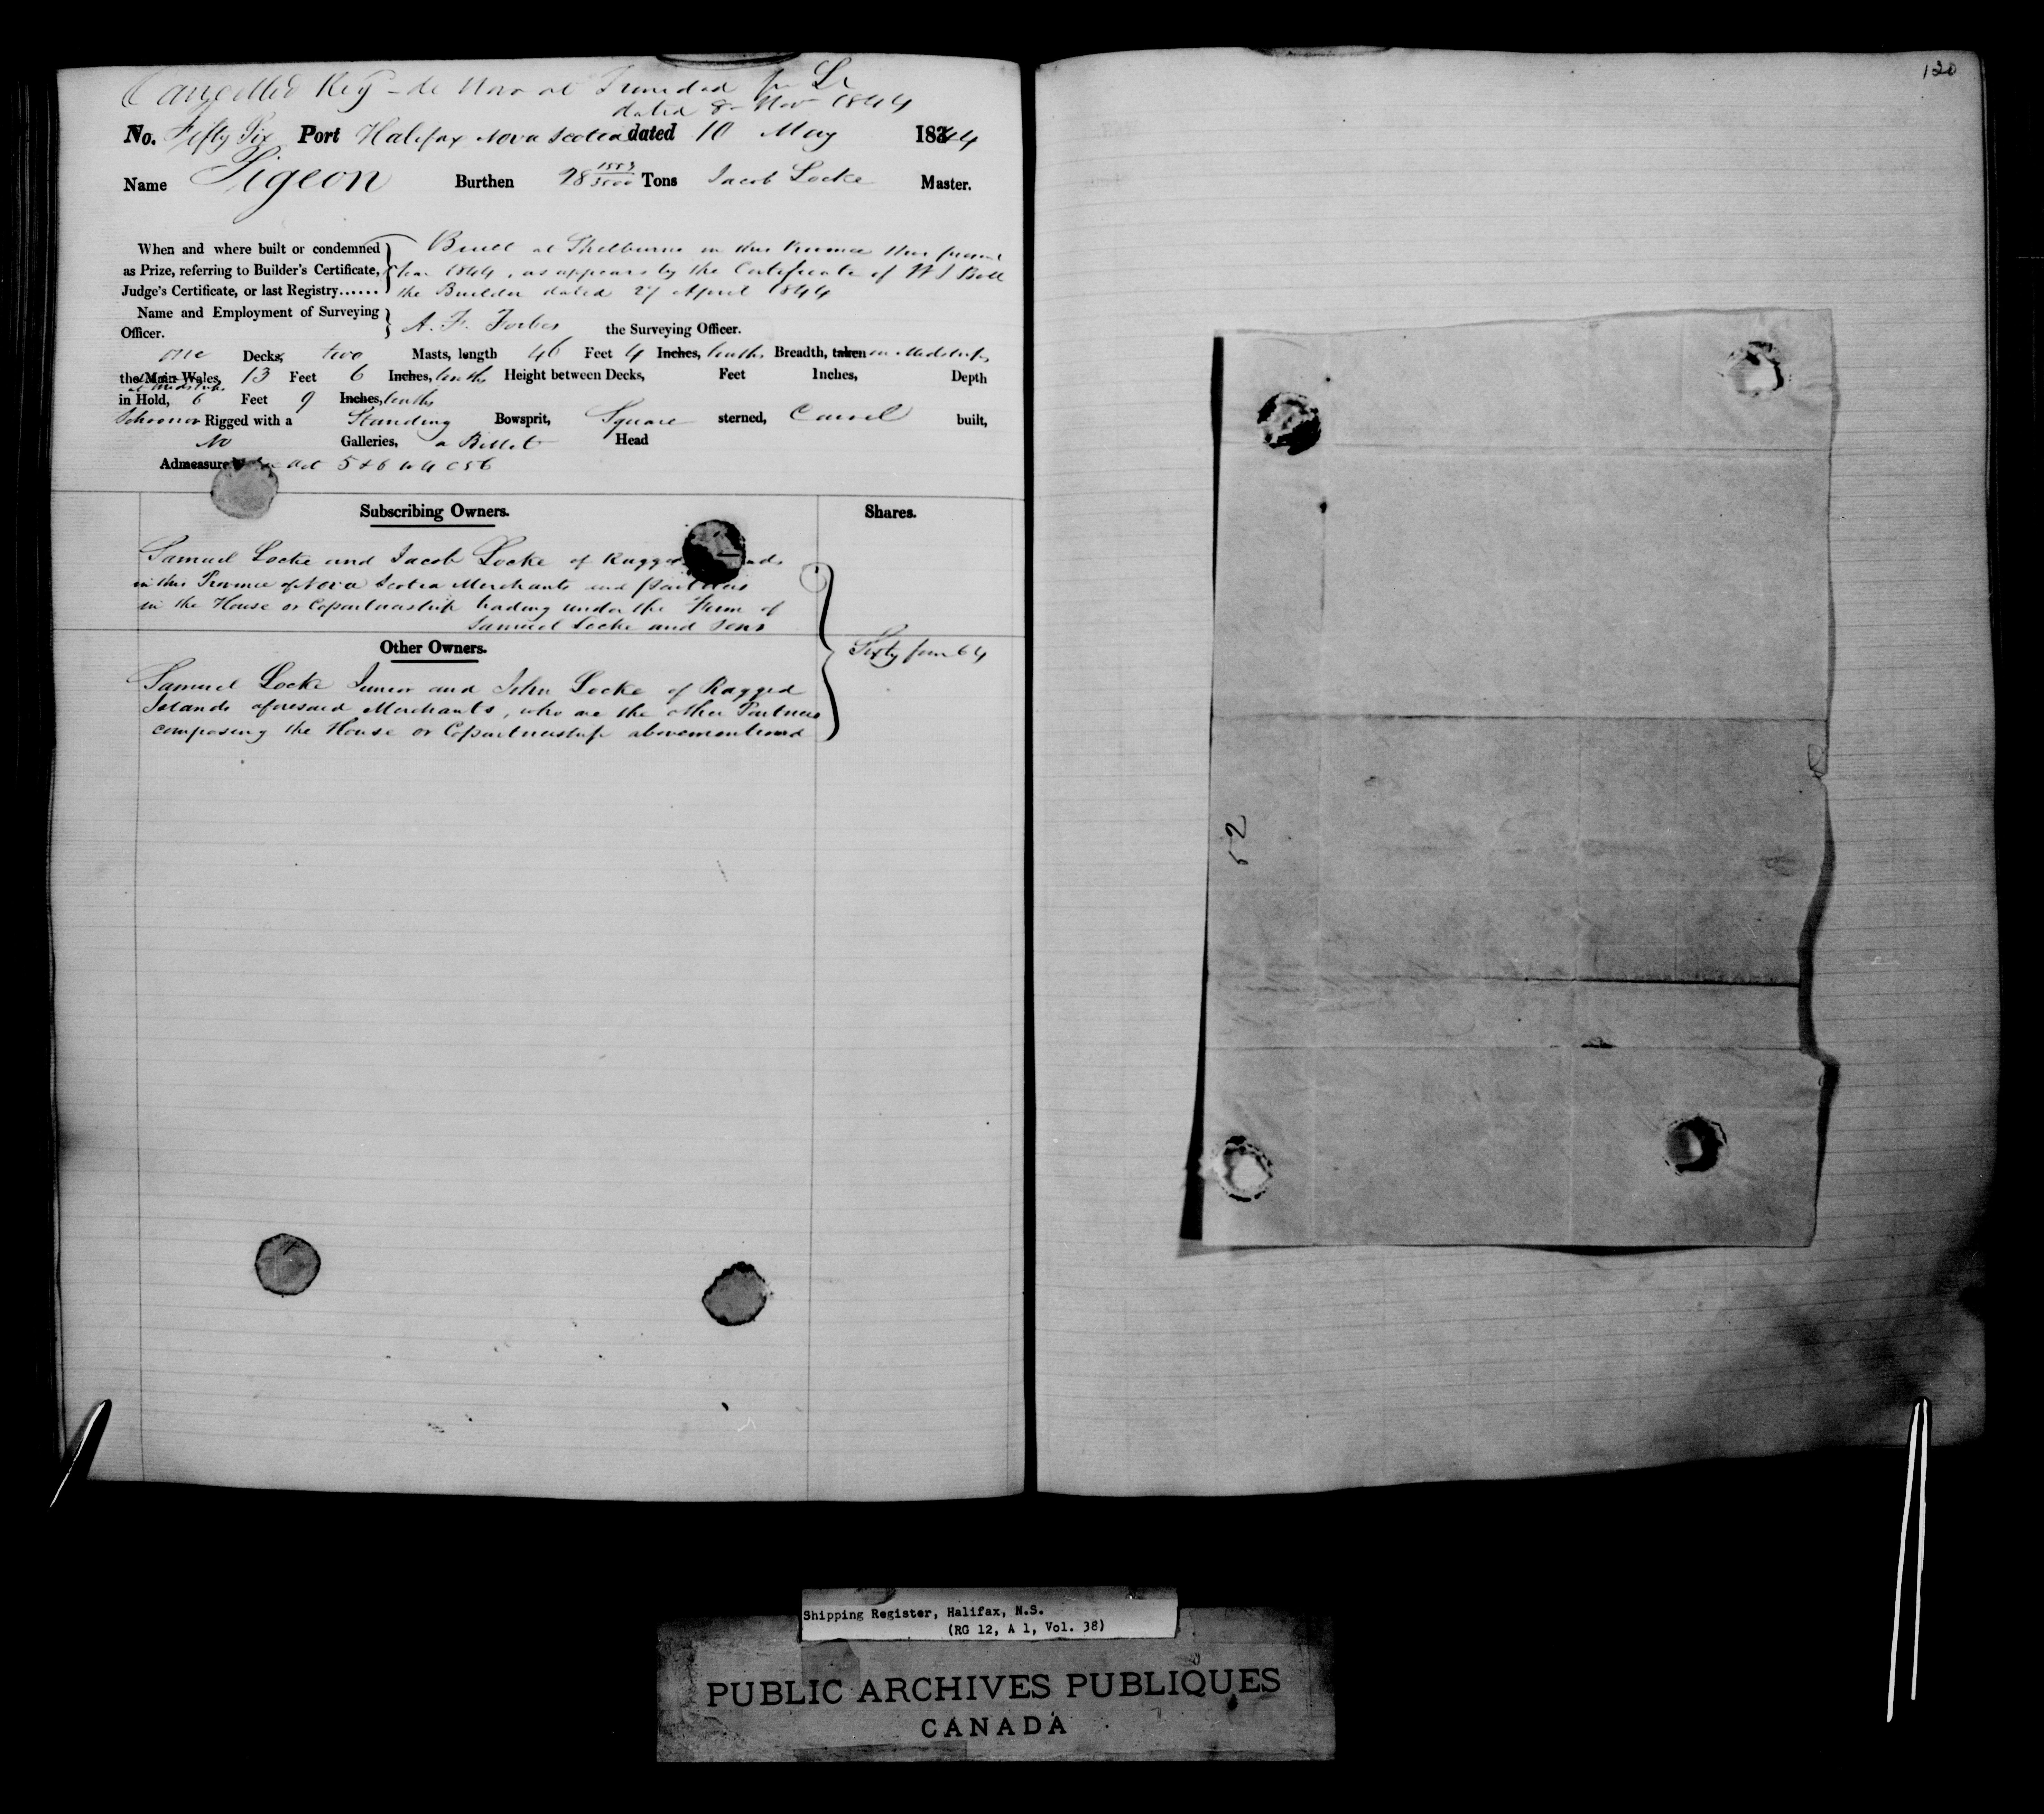 Cancelled Reg de Novo at Trinidad per Lr
dated 8 Nov 1844
No. Fifty Six Port Halifax Nova Scotia dated 10 May 18344
Name Pigeon Burthen 28 1553/3500 Tons Jacob Locke Master.
When and where built or condemned Built at Shelburne in this Province this present
as Prize, referring to Builder's Certificate, Year 1844, as appears by the Certificate of W J Bell
Judge's Certificate, or last Registry...... the Builder dated 27 April 1844
Name and Employment of Surveying
Officer. A. F. Forbes the Surveying Officer.
one Decks, two Masts, length 46 Feet 4 Inches, tenths Breadth, taken in Midships
the Main Wales, 13 Feet 6 Inches, tenths Height between Decks, Feet Inches, Depth
at Midships
in Hold, 6 Feet 9 Inches, tenths
Schooner Rigged with a Standing Bowsprit, Square sterned, Carvel built,
No Galleries, a Billet Head
Admeasure Act 5 & 6 W 4 C 56
Subscribing Owners. Shares.
Samuel Locke and Jacob Locke of Ragged
in this Province of Nova Scotia Merchants and Partners
in the House or Copartnership trading under the Firm of
Samuel Locke and Sons
Other Owners.
Sixty four 64
Samuel Locke Junior and John Locke of Ragged
Islands aforesaid Merchants, who are the other Partners
composing the House or Copartnership abovementioned
120
52
Shipping Register, Halifax, N.S.
(RG 12, A 1, Vol. 38)
PUBLIC ARCHIVES PUBLIQUES
CANADA